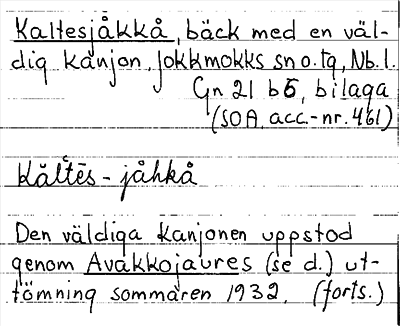 Kaltesjåkkå, bäck med en väl-
dig kanjon. Jokkmokks sn o. tg, Nb. l.
Gn 21 b6, bilaga
(SOA, acc.-nr. 461)
Kăltēs - jåhkå
Den väldiga kanjonen uppstod
genom Avakkojaures (se d.) ut-
tömning sommaren 1932. (forts.)